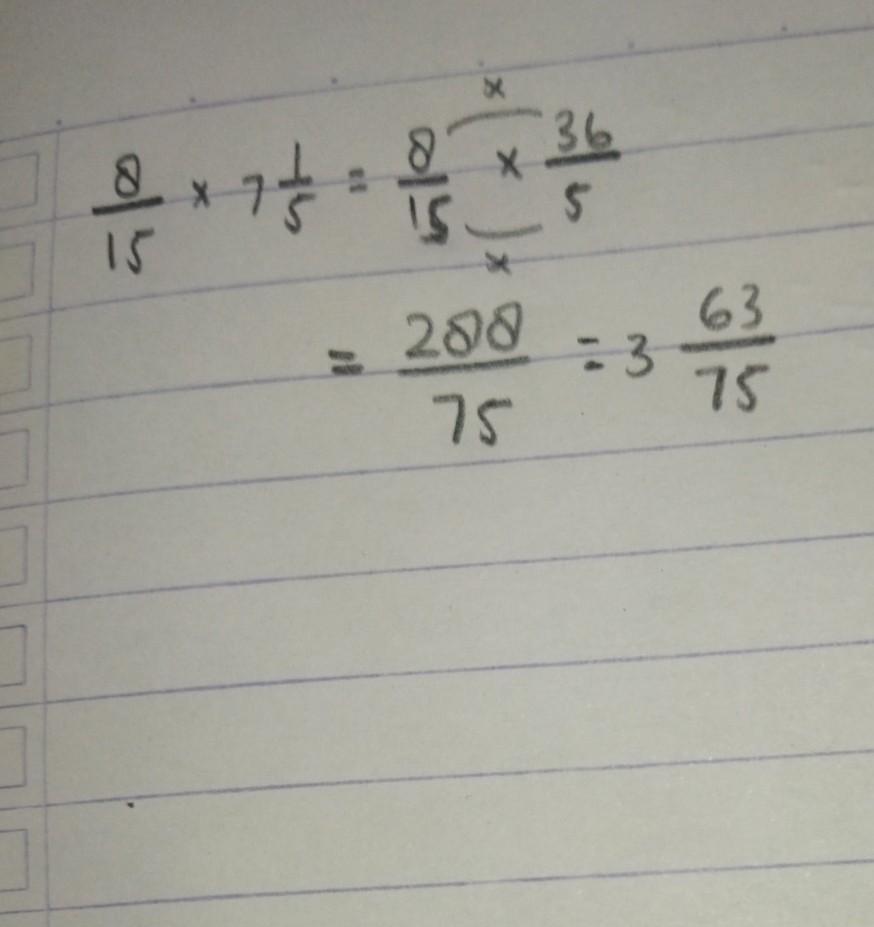 8/15 × 7 1/5 = 8/15 × 36/5
× ×
= 288/75 = 3 63/75